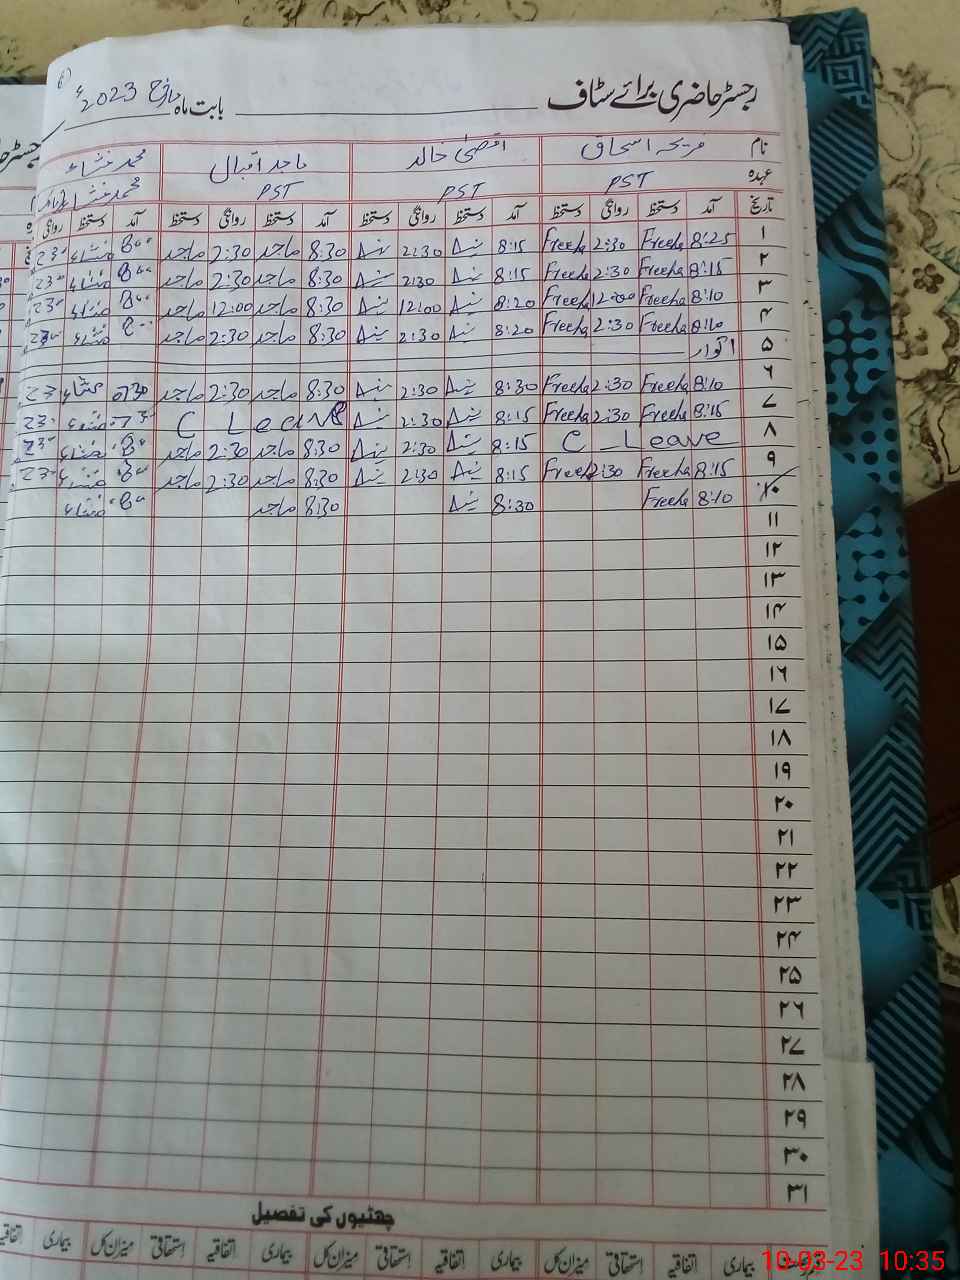 رجسٹر حاضری برائے سٹاف بابت ماہ مارچ 2023ء
نام فریحہ اسحاق اقصیٰ خالد ماجد اقبال محمد منشاء
عہدہ PST PST PST محمد منشاء
تاریخ آمد دستخط روانگی دستخط آمد دستخط روانگی دستخط آمد دستخط روانگی دستخط آمد دستخط روانگی
۱ 8:25 Freeha 2:30 Freeha 8:15 2:30 8:30 ماجد 2:30 ماجد 8°° منشاء 23°
۲ 8:15 Freeha 2:30 Freeha 8:15 2:30 8:30 ماجد 2:30 ماجد 8°° منشاء 23°
۳ 8:10 Freeha 12:00 Freeha 8:20 12:00 8:30 ماجد 12:00 ماجد 8°° منشاء
۴ 8:10 Freeha 2:30 Freeha 8:20 2:30 8:30 ماجد 2:30 ماجد 8°° منشاء
۵ اتوار
۶ 8:10 Freeha 2:30 Freeha 8:30 2:30 8:30 ماجد 2:30 ماجد منشاء
۷ 8:15 Freeha 2:30 Freeha 8:15 2:30 C Leave منشاء 23°
۸ C Leave 8:15 2:30 8:30 ماجد 2:30 ماجد منشاء 23°
۹ 8:15 Freeha 2:30 Freeha 8:15 2:30 8:30 ماجد 2:30 ماجد 8°° منشاء 23°
۱۰ 8:10 Freeha 8:30 8:30 ماجد 8°° منشاء
۱۱
۱۲
۱۳
۱۴
۱۵
۱۶
۱۷
۱۸
۱۹
۲۰
۲۱
۲۲
۲۳
۲۴
۲۵
۲۶
۲۷
۲۸
۲۹
۳۰
۳۱
چھٹیوں کی تفصیل
بیماری اتفاقیہ استحقاقی میزان کل بیماری اتفاقیہ استحقاقی میزان کل بیماری اتفاقیہ استحقاقی میزان کل بیماری اتفاقیہ
10-03-23 10:35